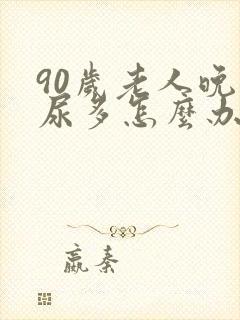 90歲老人晚
尿多怎麼办
嬴秦